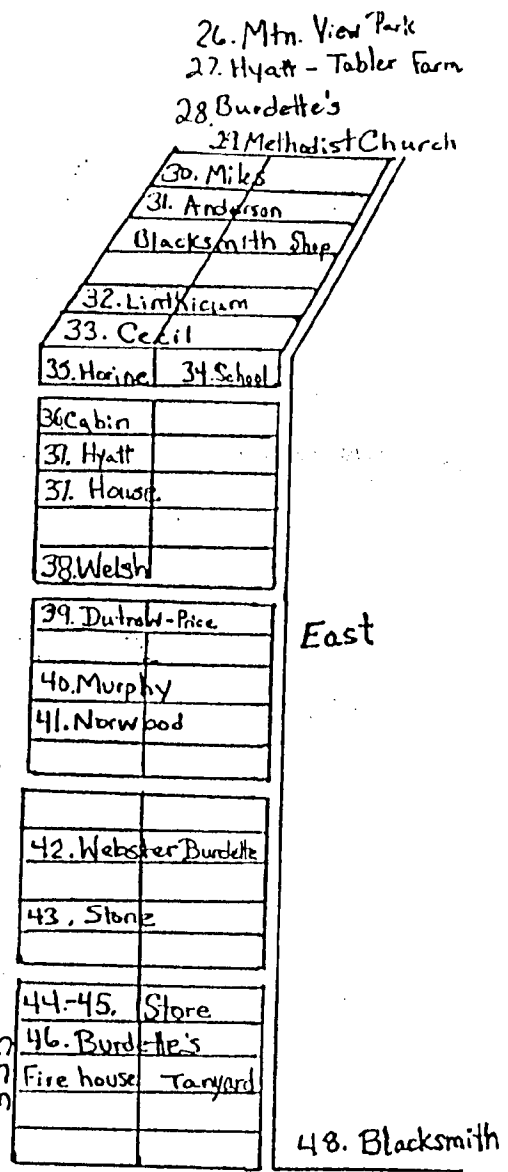 26. Mtn. View Park
27. Hyatt - Tabler Farm
28. Burdette's
29 Methodist Church
30. Miles
31. Anderson
Blacksmith Shop
32. Linthicum
33. Cecil
35. Horine 34. School
36. Cabin
37. Hyatt
37. House
38. Welsh
39. Dutrow-Price
East
40. Murphy
41. Norwood
42. Webster Burdette
43. Stone
44.-45. Store
46. Burdette's
Fire house Tanyard
48. Blacksmith